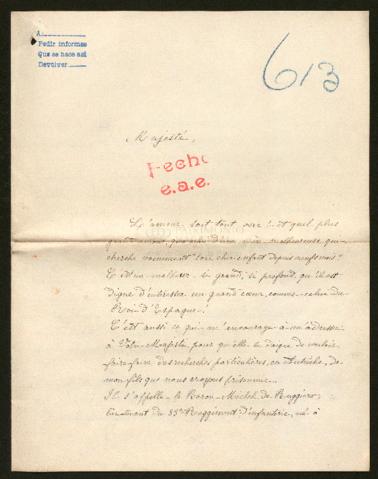 A
Pedir informes
Que se hace así
Devolver
613
Majesté,
Hecho
e.a.e.
L'amour sait tout oser! et quel plus
malheureuse qui
cherche son cher enfant depuis
C'est un malheur si grand, si profond, qu'il est
digne d'intéresser un grand cœur, comme celui du
Roi d'Espagne!
C'est aussi ce qui m'encourage à m'adresser
à Votre Majesté pour qu'elle daigne de vouloir
faire faire des recherches particulières, en Autriche, de
mon fils que nous croyons prisonnier.
Il s'appelle le Baron Michel de Ruggiero,
lieutenant du 85e Reggiment d'infanterie, né à